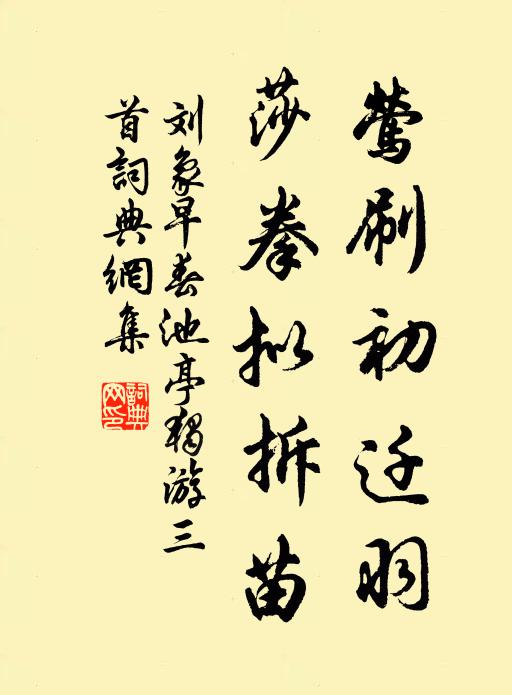 莺刷初迁羽
莎拳拟拆苗
刘象早春池亭独游三
首詞典網集
詞典網印